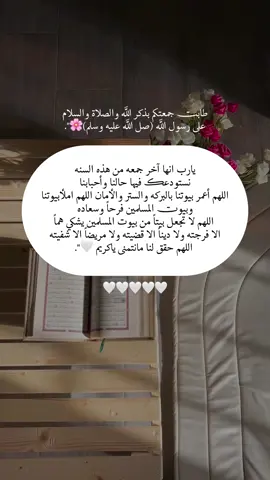 طابت جمعتكم بذكر الله والصلاة والسلام
على رسول الله (صل الله عليه وسلم)🌸".
يارب انها آخر جمعه من هذه السنه
نستودعك فيها حالنا وأحبابنا
اللهم أعمر بيوتنا بالبركه والستر والأمان اللهم املأبيوتنا
وبيوت المسلمين فرحاً وسعاده
اللهم لا تجعل بيتاً من بيوت المسلمين يشكي هماً
الا فرجته ولا ديناً الا قضيته ولا مريضاً الا شفيته
اللهم حقق لنا مانتمنى ياكريم 🤍".
🤍🤍🤍🤍🤍